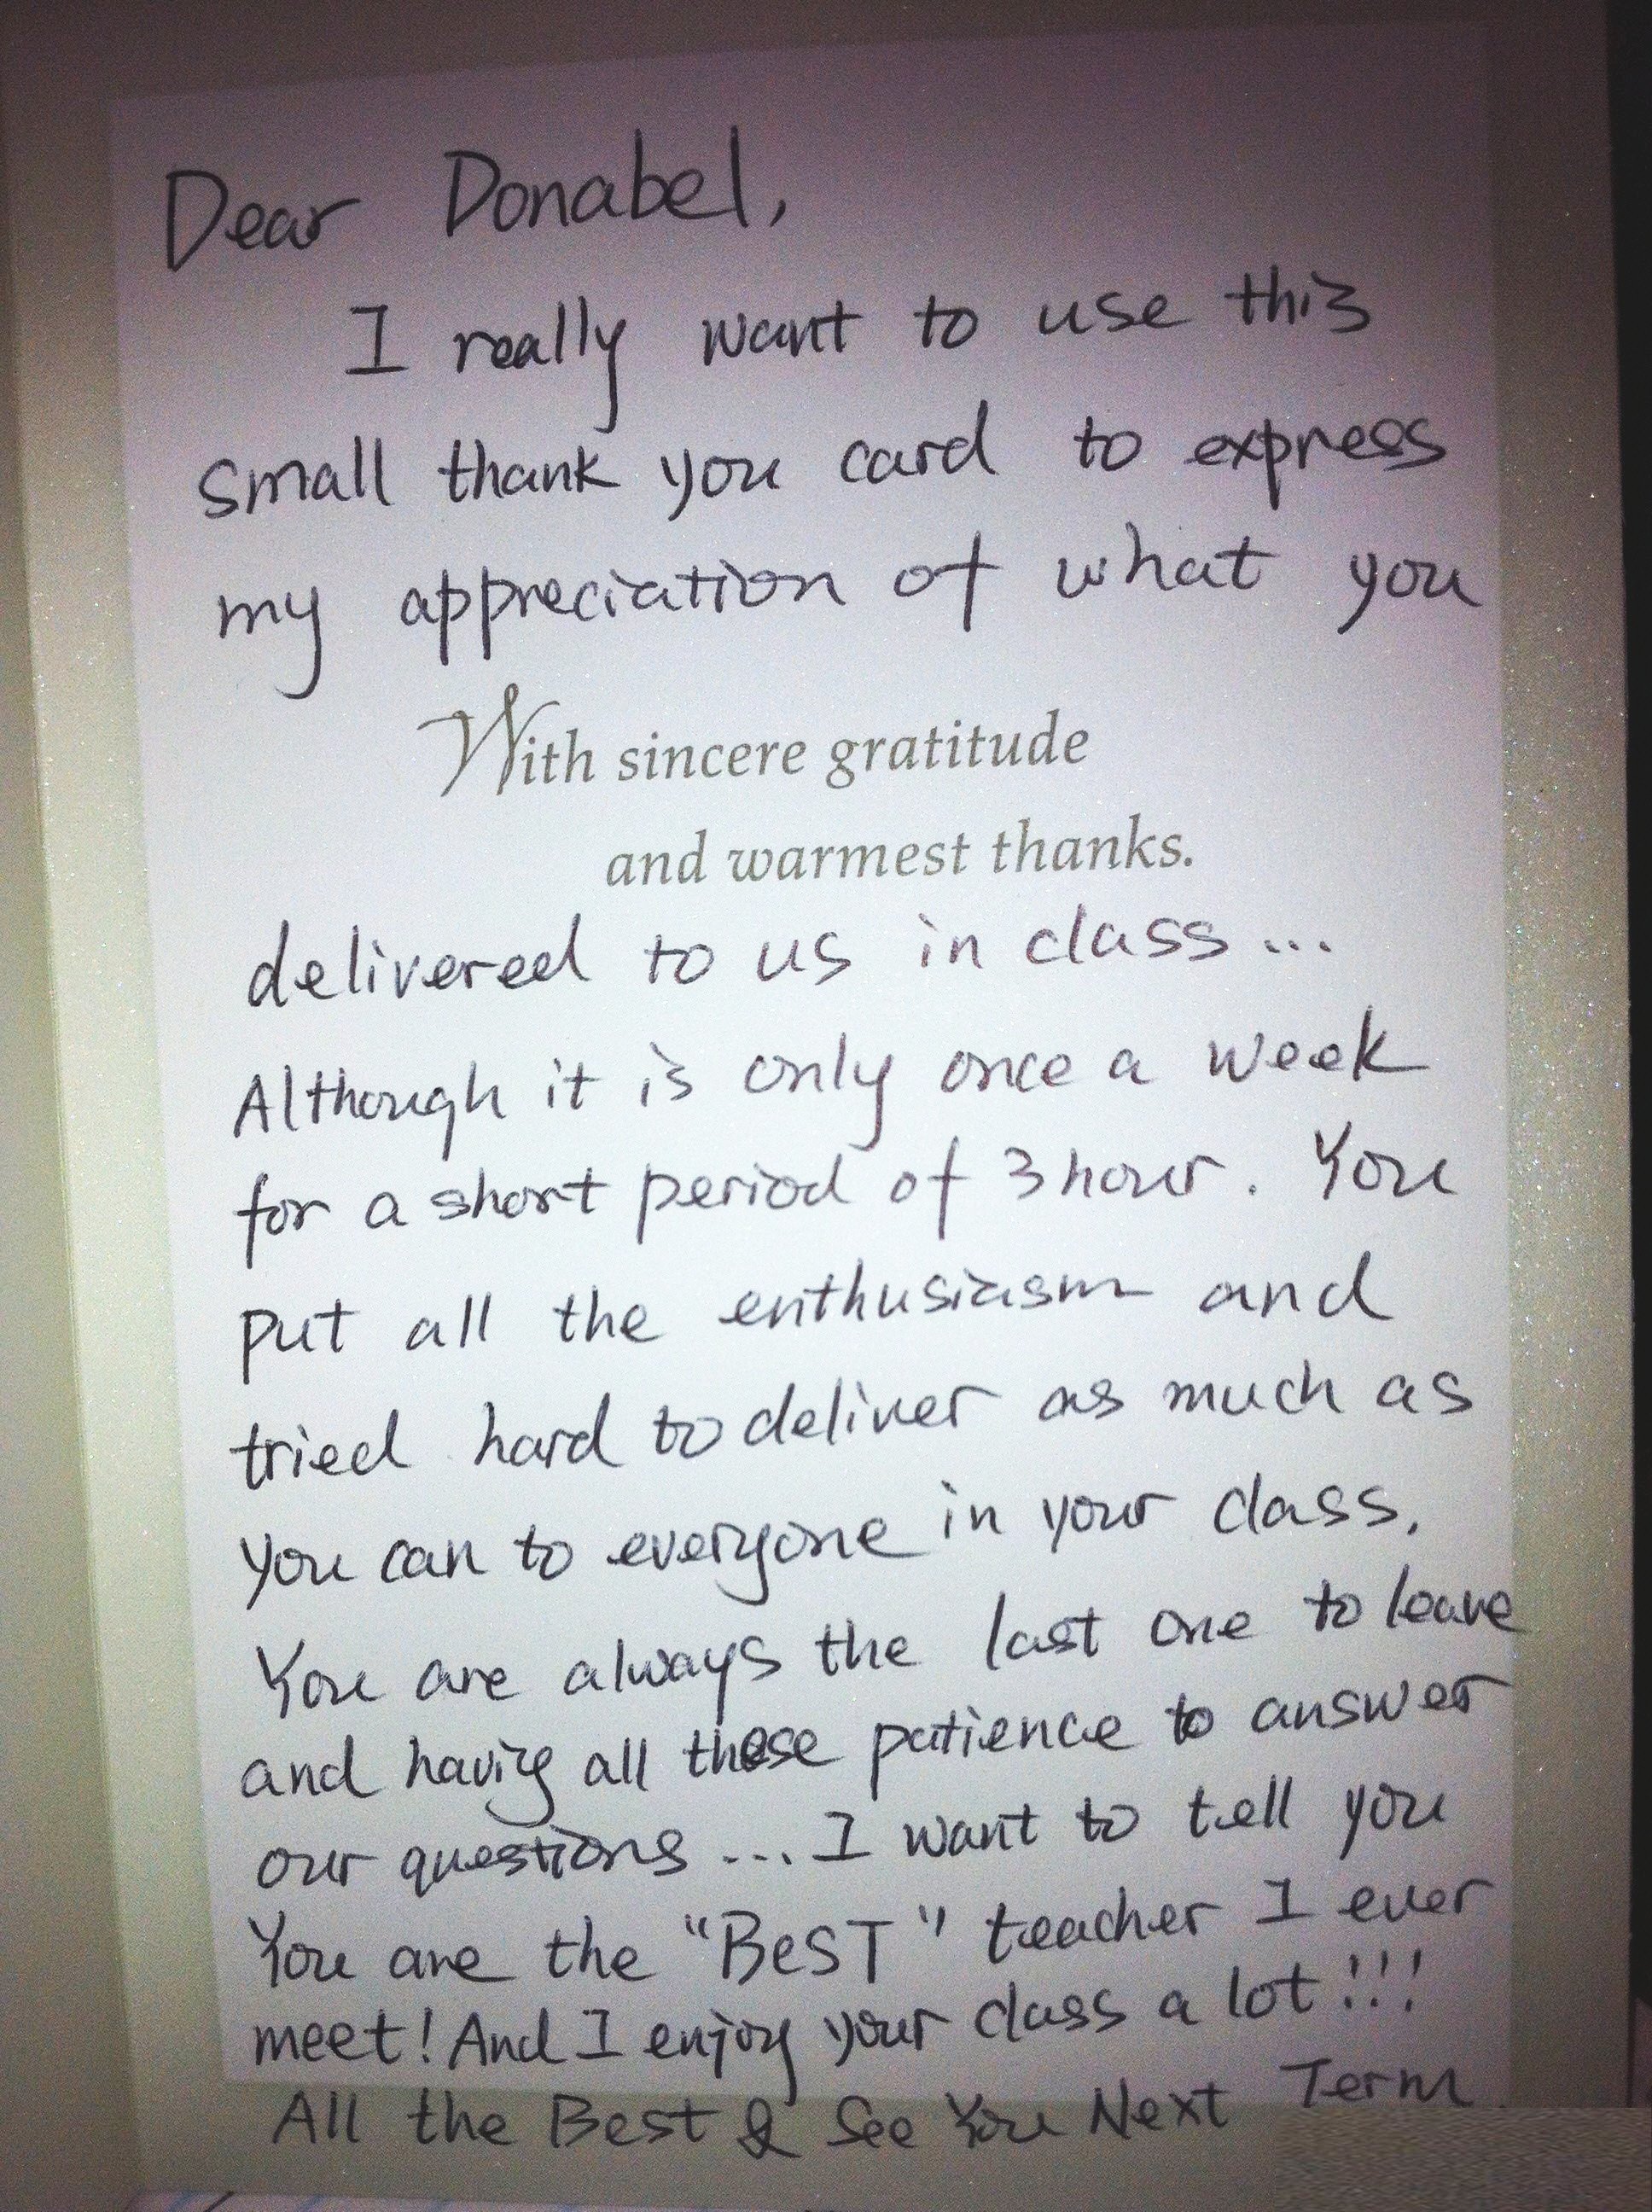 Dear Donabel,
I really want to use this
small thank you card to express
my appreciation of what you
With sincere gratitude
and warmest thanks.
delivered to us in class...
Although it is only once a week
for a short period of 3 hour. You
put all the enthusiasm and
tried hard to deliver as much as
you can to everyone in your class.
You are always the last one to leave
and having all these patience to answer
our questions... I want to tell you
You are the "BesT" teacher I ever
meet! And I enjoy your class a lot!!!
All the Best & See You Next Term